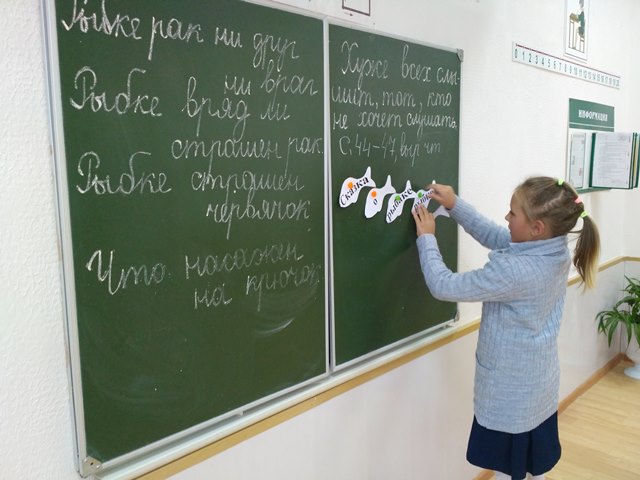 Рыбке рак ни друг
ни враг
Рыбке вряд ли
страшен рак.
Рыбке страшен
червячок
Что насажен
на крючок.
Хуже всех слы-
шит, тот, кто
не хочет слушать
с. 44-47, выр. чт
Сказка
о
рыбаке
0 1 2 3 4 5 6 7 8 9 10 11 12 13 14 15 16 17 18 19 20
ИНФОРМАЦИЯ